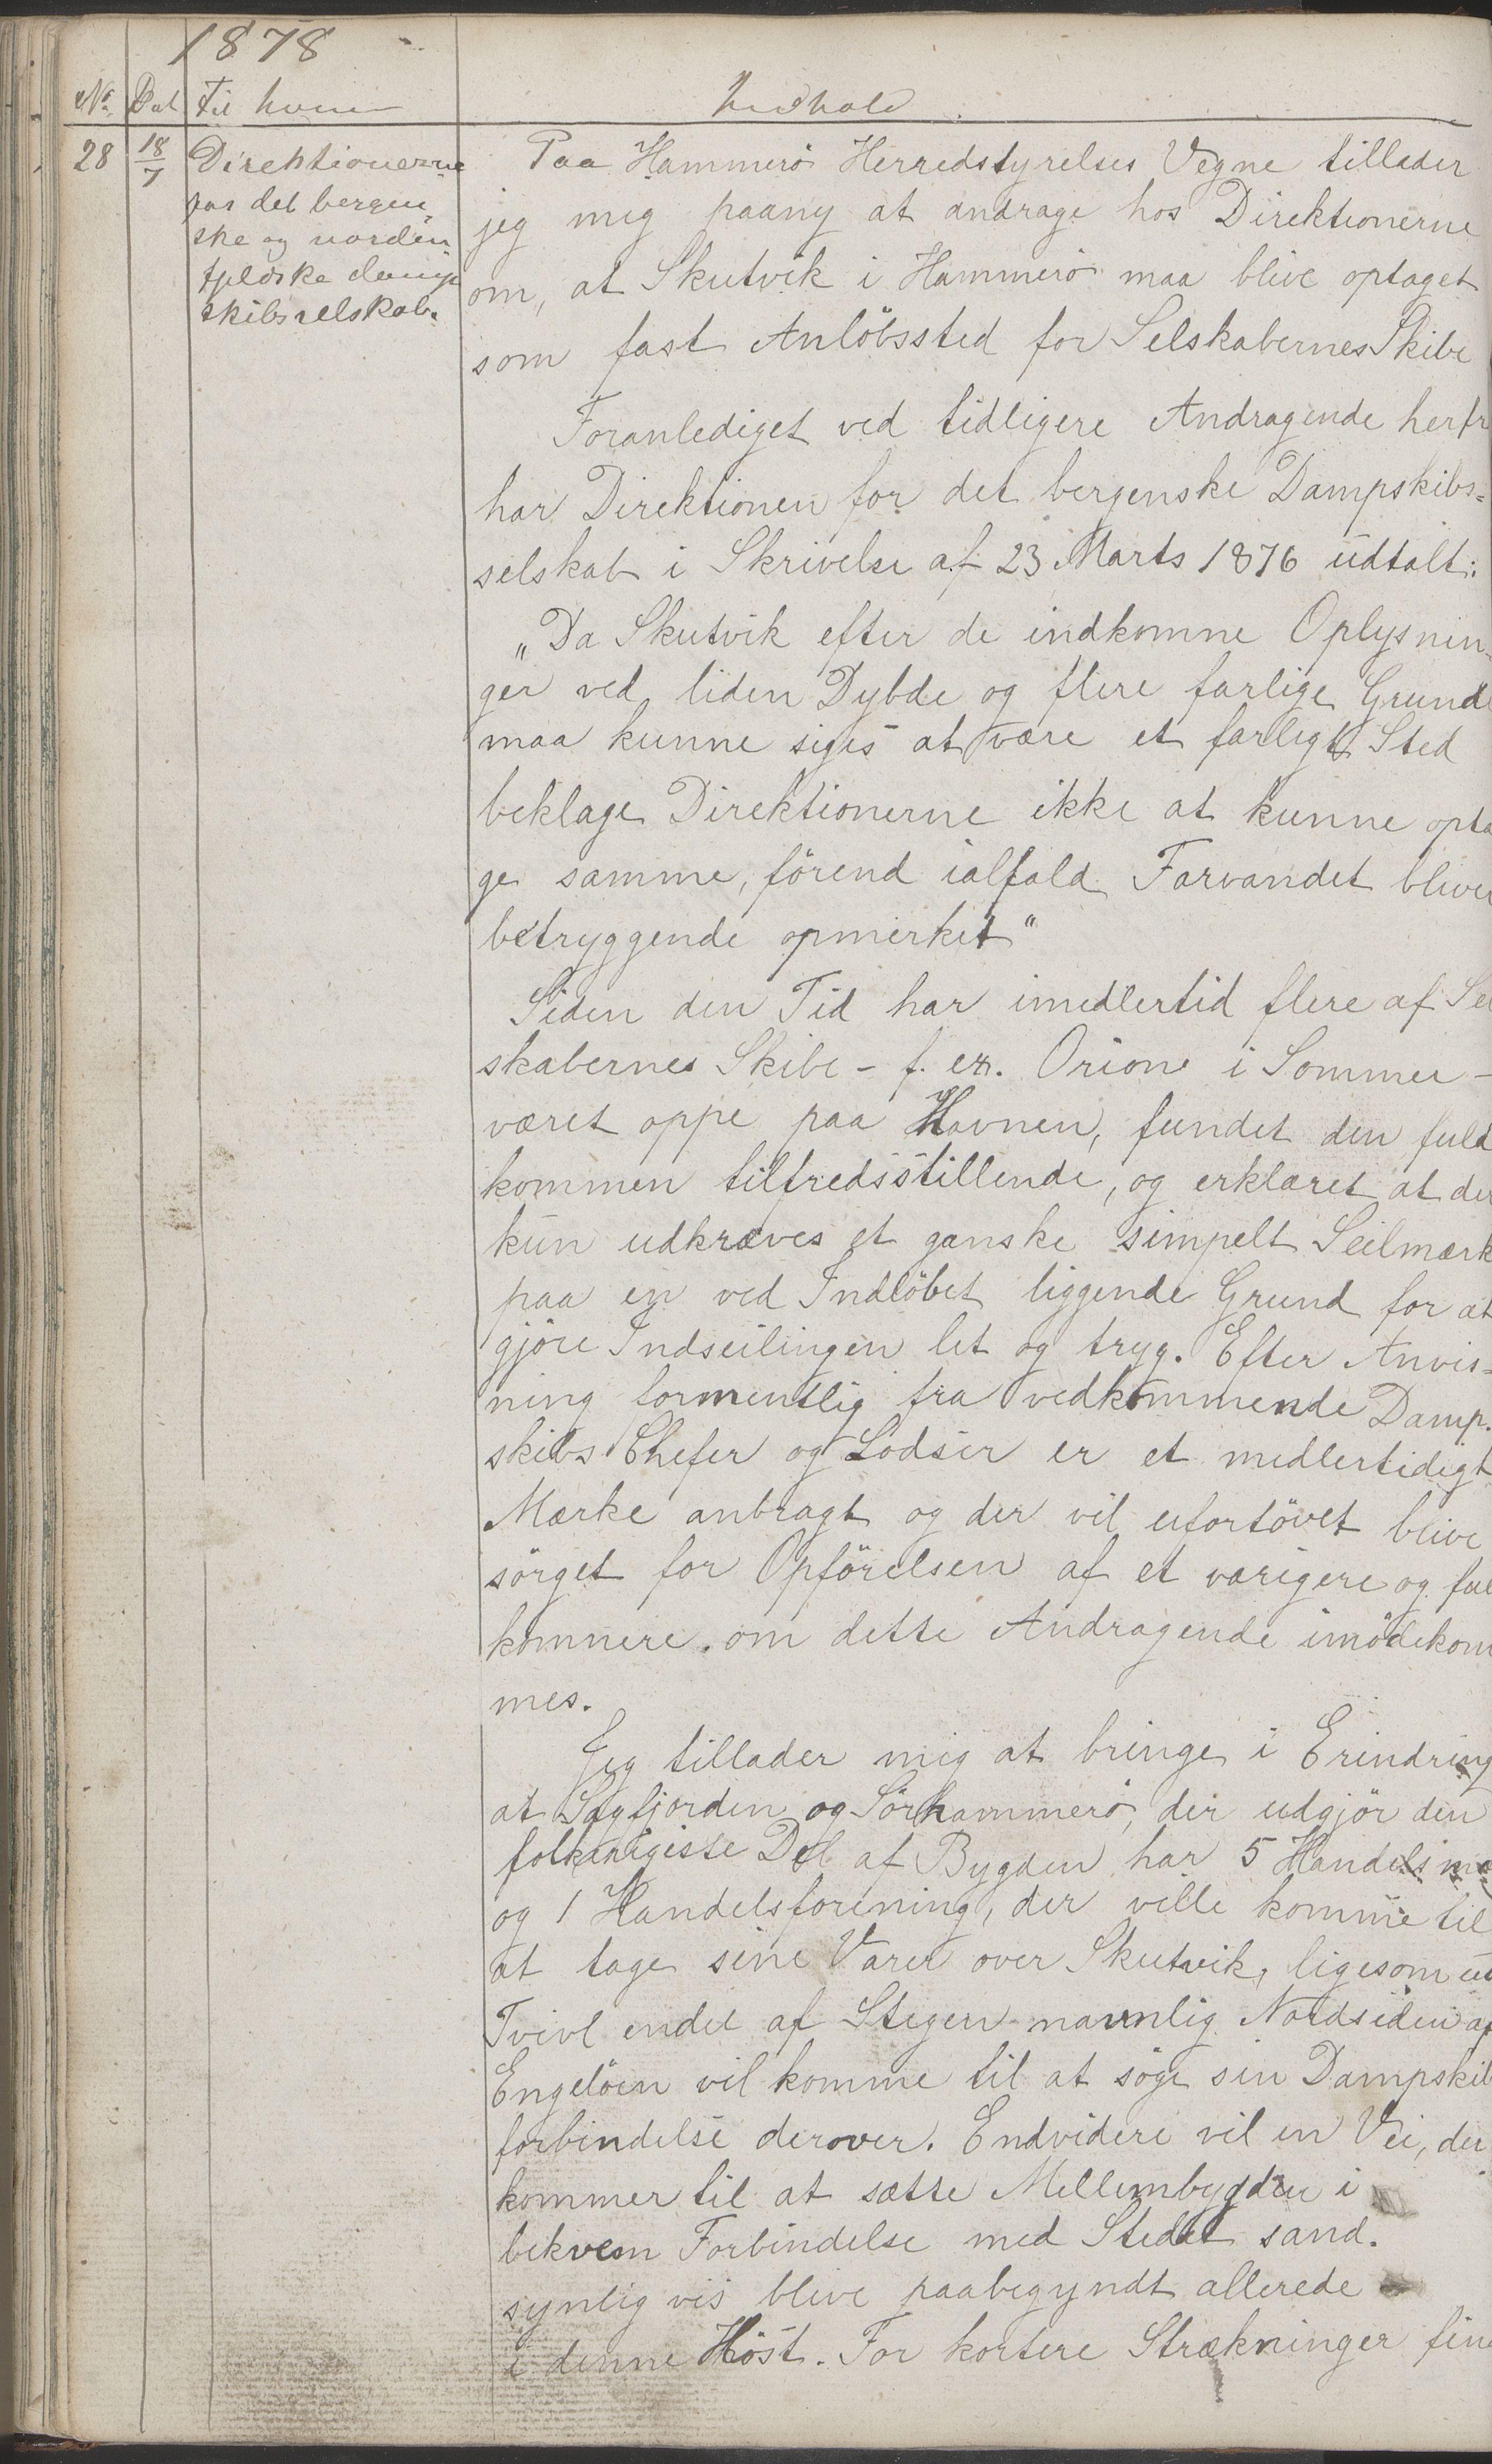 1878
No. Dat Til hvem Indhold.
28 18/7 Direktionerne
for det bergen„
ske og norden„
fjeldske damp
skibsselskab.
Paa Hammerö Herredstyrelses Vegne tillader
jeg mig paany at andrage hos Direktionerne
om, at Skutvik i Hammerö maa blive optaget
som fast Anlöbssted for Selskabernes Skibe
Foranlediget ved tidligere Andragende herfr
har Direktionen for det bergenske Dampskibs=
selskab i Skrivelse af 23 Marts 1876 udtalt:
„Da Skutvik efter de indkomne Oplysnin-
ger ved liden Dybde og flere farlige Grunde
maa kunne siges at være et farligt Sted
beklage Direktionerne ikke at kunne opta
ge samme, förend ialfald Farvandet bliver
betryggende opmerket"
Siden den Tid har imedlertid flere af Sel
skabernes Skibe - f. ex. Orion i Sommer -
været oppe paa Havnen, fundet den fuld
kommen tilfredsstillende, og erklæret at der
kun udkræves et ganske simpelt Seilmærk
paa en ved Indlöbet liggende Grund for at
gjöre Indseilingen let og tryg. Efter Anvis=
ning formentlig fra vedkommende Damp.
skibs Chefer og Lodser er et medlertidigt
Mærke anbragt og der vil ufortövet blive
sörget for Opförelsen af et varigere og ful
komnere om dette Andragende imödekom
mes.
Jeg tillader mig at bringe i Erindring
at Sagfjorden og Sörhammerö, der udgjör den
folkerigeste Del af Bygden har 5 Handelsmæ
og 1 Handelsforening, der ville komme til
at tage sine Varer over Skutvik, ligesom ud
Tvivl endel af Stegen navnlig Nordsiden af
Engelöen vil komme til at söge sin Dampskib
forbindelse derover. Endvidere vil en Vei, der
kommer til at sætte Mellembygden i
bekvem Forbindelse med Stedet sand.
synlig vis blive paabegyndt allerede
i denne Höst. For kortere Strækninger fin